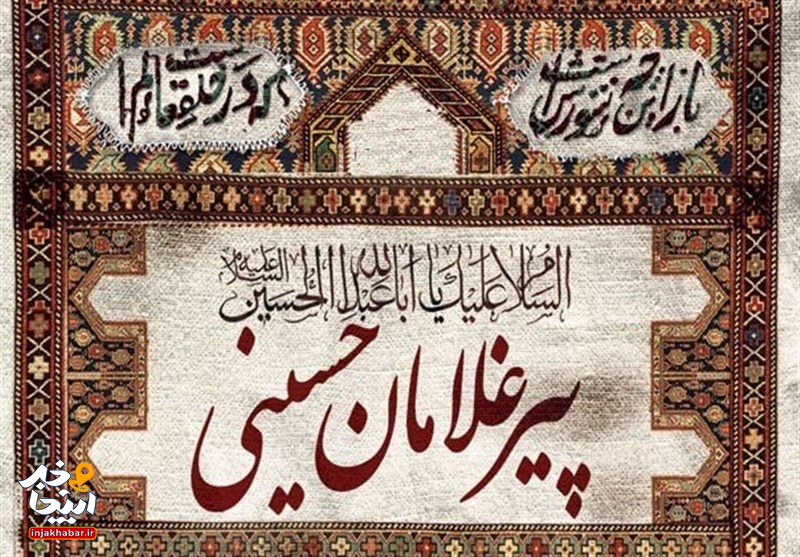 باز این چه شورش است
که در خلق عالم است
السلام علیك یا اباعبدالله الحسین علیه السلام
پیرغلامان حسینی
اینجا خبر
injakhabar.ir